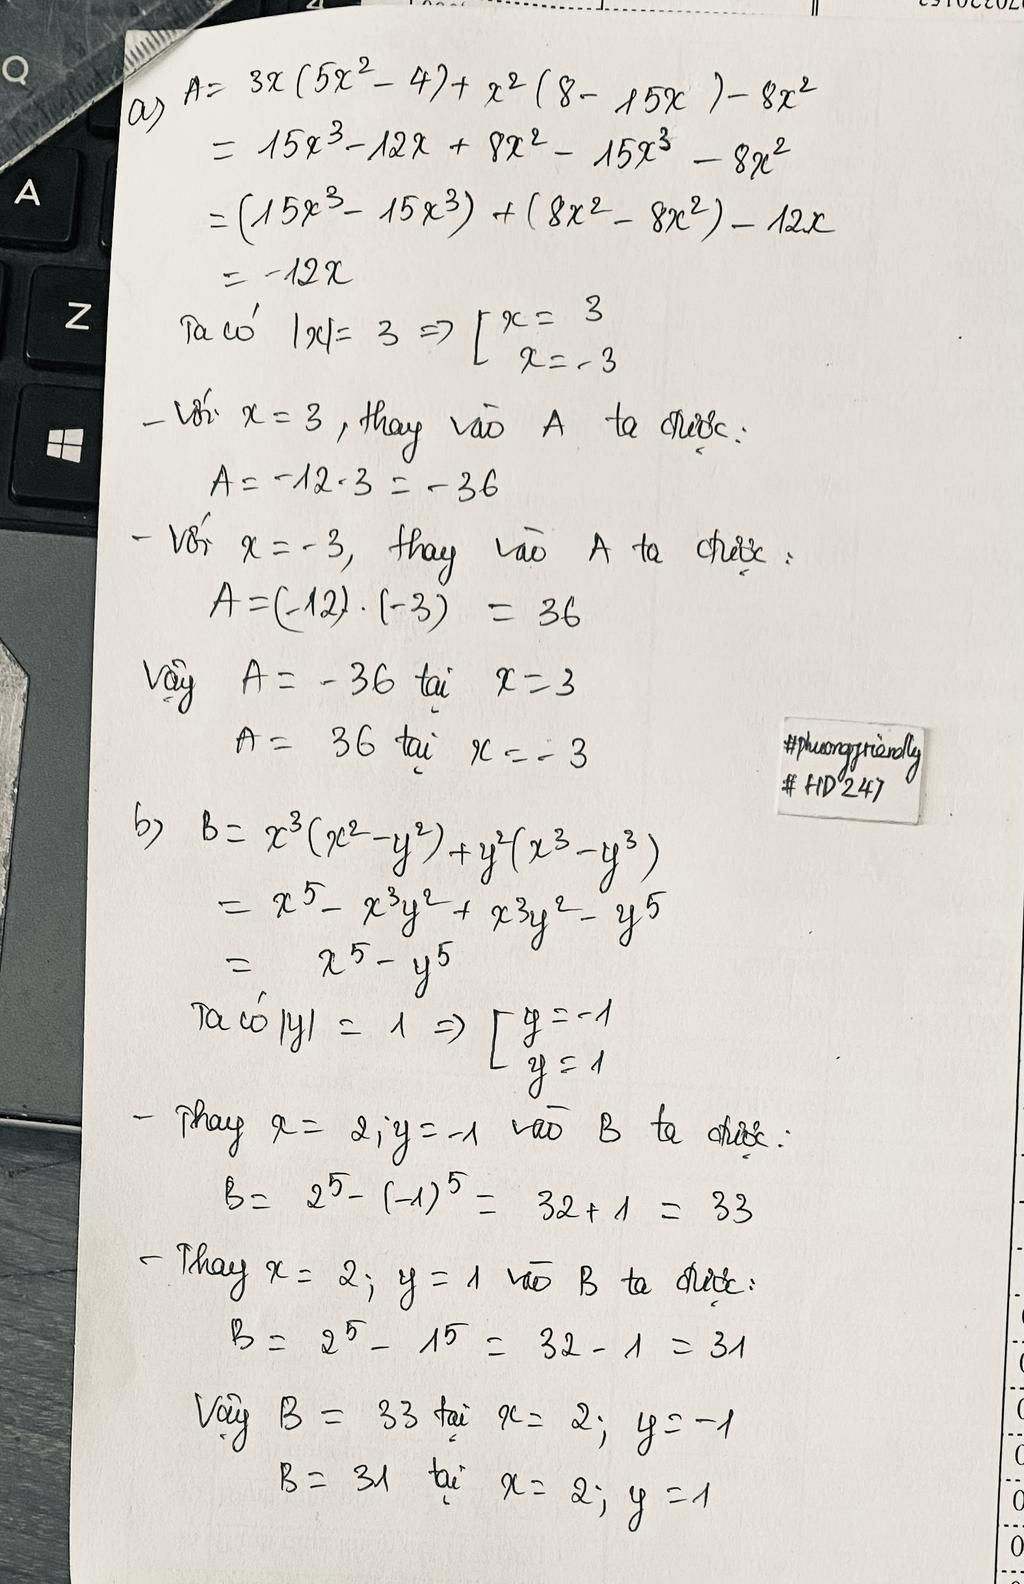 Q
A
Z
a) A= 3x(5x² - 4) + x²(8 - 15x) - 8x²
= 15x³ - 12x + 8x² - 15x³ - 8x²
= (15x³ - 15x³) + (8x² - 8x²) - 12x
= -12x
Ta có |x| = 3 => [ x = 3
x = -3
- Với x = 3, thay vào A ta được:
A = -12.3 = -36
- Với x = -3, thay vào A ta được:
A = (-12).(-3) = 36
Vậy A = -36 tại x = 3
A = 36 tại x = -3
#phuongfriendly
# HD247
b) B = x³(x² - y²) + y²(x³ - y³)
= x⁵ - x³y² + x³y² - y⁵
= x⁵ - y⁵
Ta có |y| = 1 => [ y = -1
y = 1
- Thay x = 2; y = -1 vào B ta được:
B = 2⁵ - (-1)⁵ = 32 + 1 = 33
- Thay x = 2; y = 1 vào B ta được:
B = 2⁵ - 1⁵ = 32 - 1 = 31
Vậy B = 33 tại x = 2; y = -1
B = 31 tại x = 2; y = 1